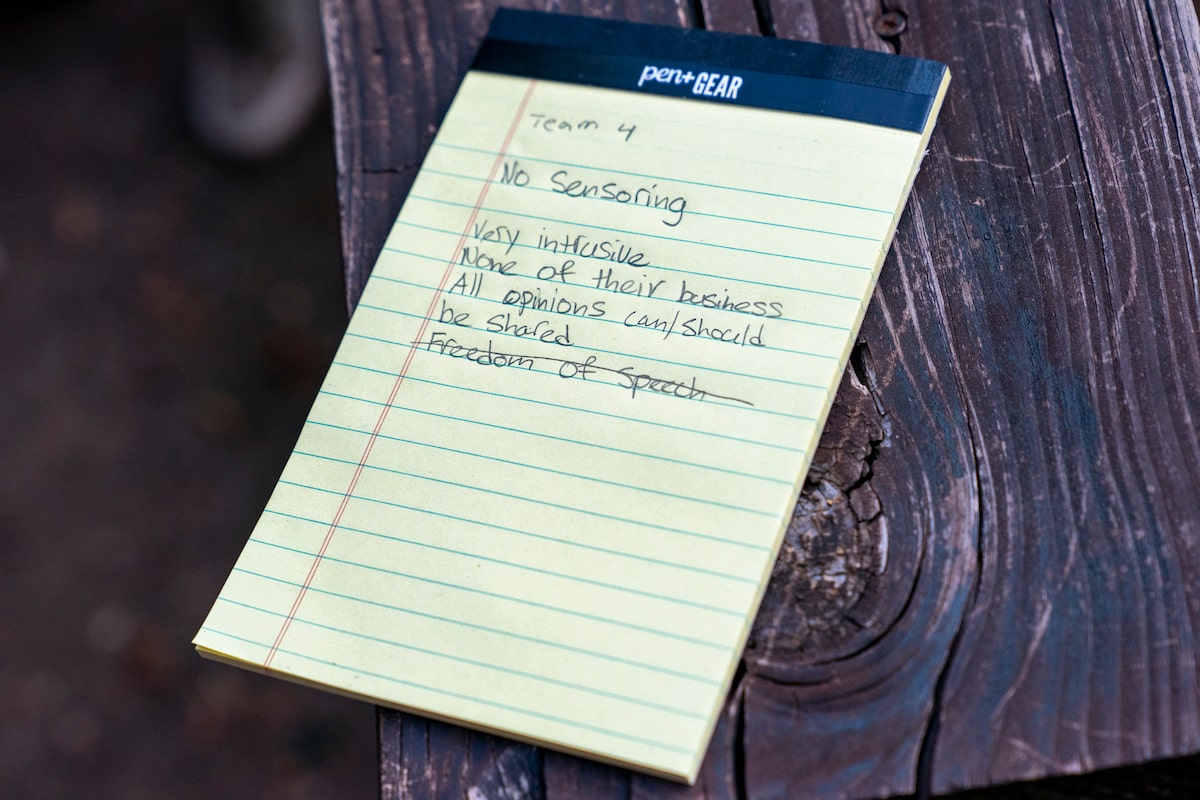 pen+GEAR
Team 4
No Sensoring
Very intrusive
None of their business
All opinions can/should
be shared
Freedom of Speech